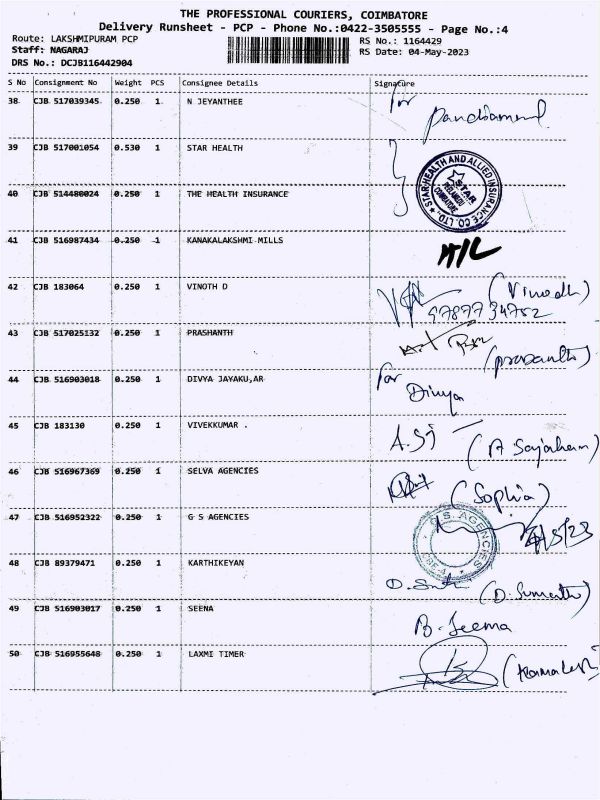 THE PROFESSIONAL COURIERS, COIMBATORE
Delivery Runsheet - PCP - Phone No.:0422-3505555 - Page No.:4
Route: LAKSHMIPURAM PCP RS No.: 1164429
Staff: NAGARAJ RS Date: 04-May-2023
DRS No.: DCJB116442904
S No Consignment No Weight PCS Consignee Details Signature
38 CJB 517039345 0.250 1 N JEYANTHEE for
39 CJB 517001054 0.530 1 STAR HEALTH
STAR HEALTH AND ALLIED INSURANCE CO. LTD. STAR PEELAMEDU COIMBATORE
40 CJB 514480024 0.250 1 THE HEALTH INSURANCE
41 CJB 516987434 0.250 1 KANAKALAKSHMI MILLS
42 CJB 183064 0.250 1 VINOTH D (Vinodh)
9787734752
43 CJB 517025132 0.250 1 PRASHANTH
(prasanth)
44 CJB 516903018 0.250 1 DIVYA JAYAKU,AR for
Divya
45 CJB 183130 0.250 1 VIVEKKUMAR .
46 CJB 516967369 0.250 1 SELVA AGENCIES (Sophia)
47 CJB 516952322 0.250 1 G S AGENCIES G.S. AGENCIES
48 CJB 89379471 0.250 1 KARTHIKEYAN
(D. Sumathi)
49 CJB 516903017 0.250 1 SEENA B. Seema
50 CJB 516955648 0.250 1 LAXMI TIMER (Kamalesh)